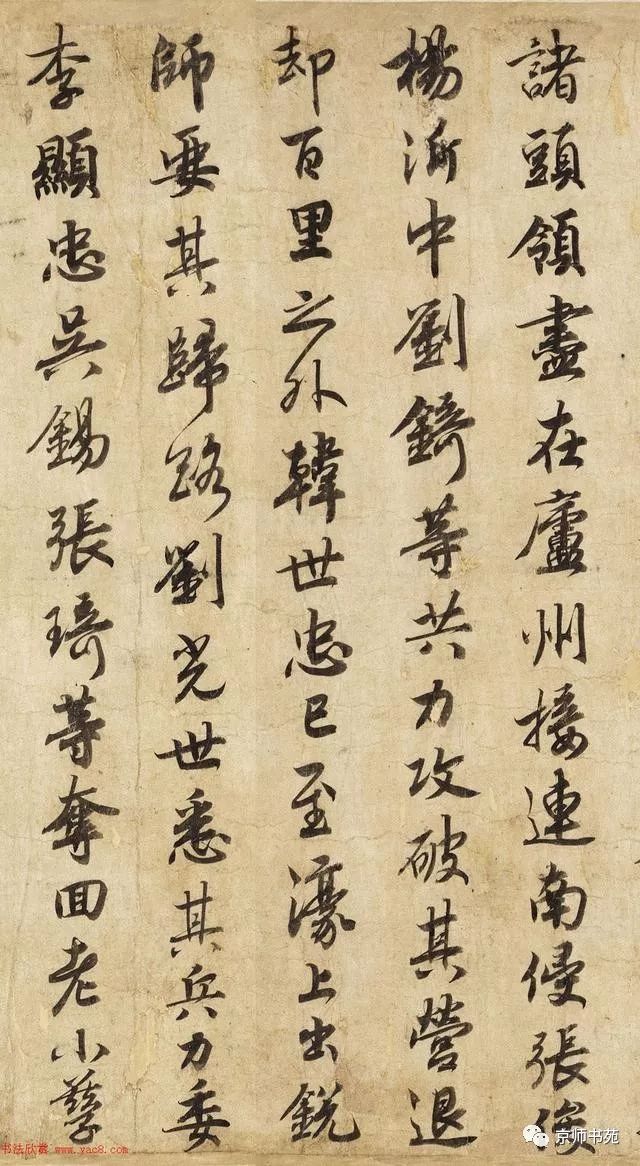 諸頭領盡在廬州接連南侵張俊
楊沂中劉錡等共力攻破其營退
却百里之外韓世忠已至濠上出銳
師要其歸路劉光世悉其兵力委
李顯忠吳錫張琦等奪回老小孳
书法欣赏 www.yac8.com
京师书苑